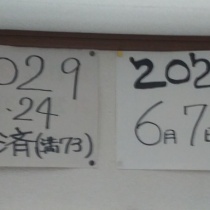 029
.24
済(満73)
202
6月7日